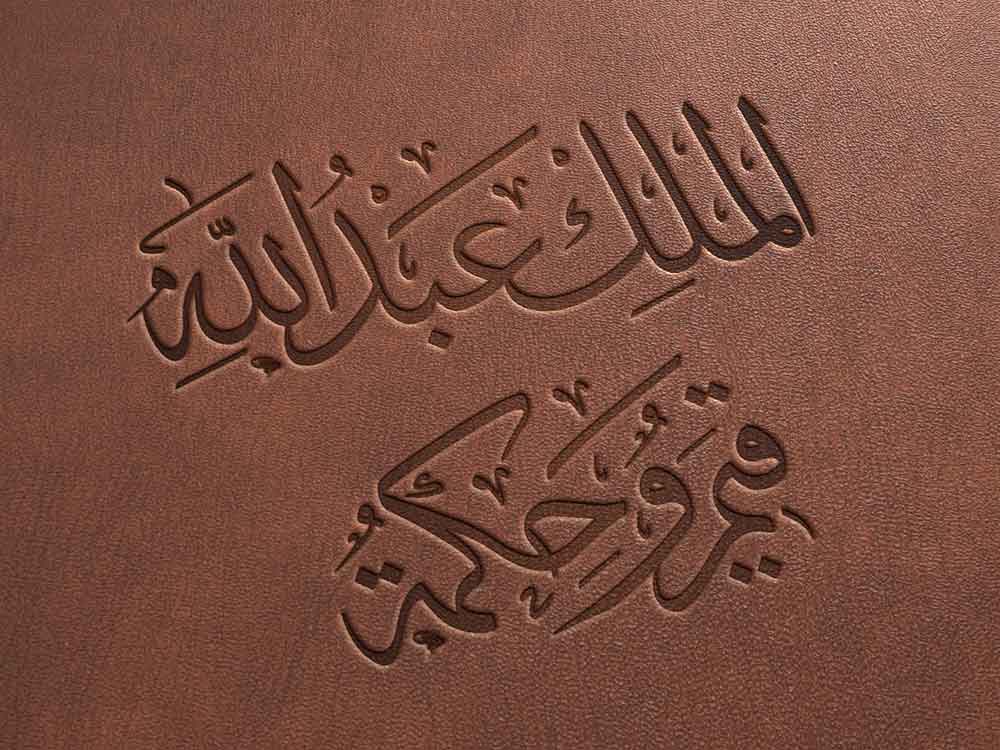 الملك عبدالله
قيم وحكمة